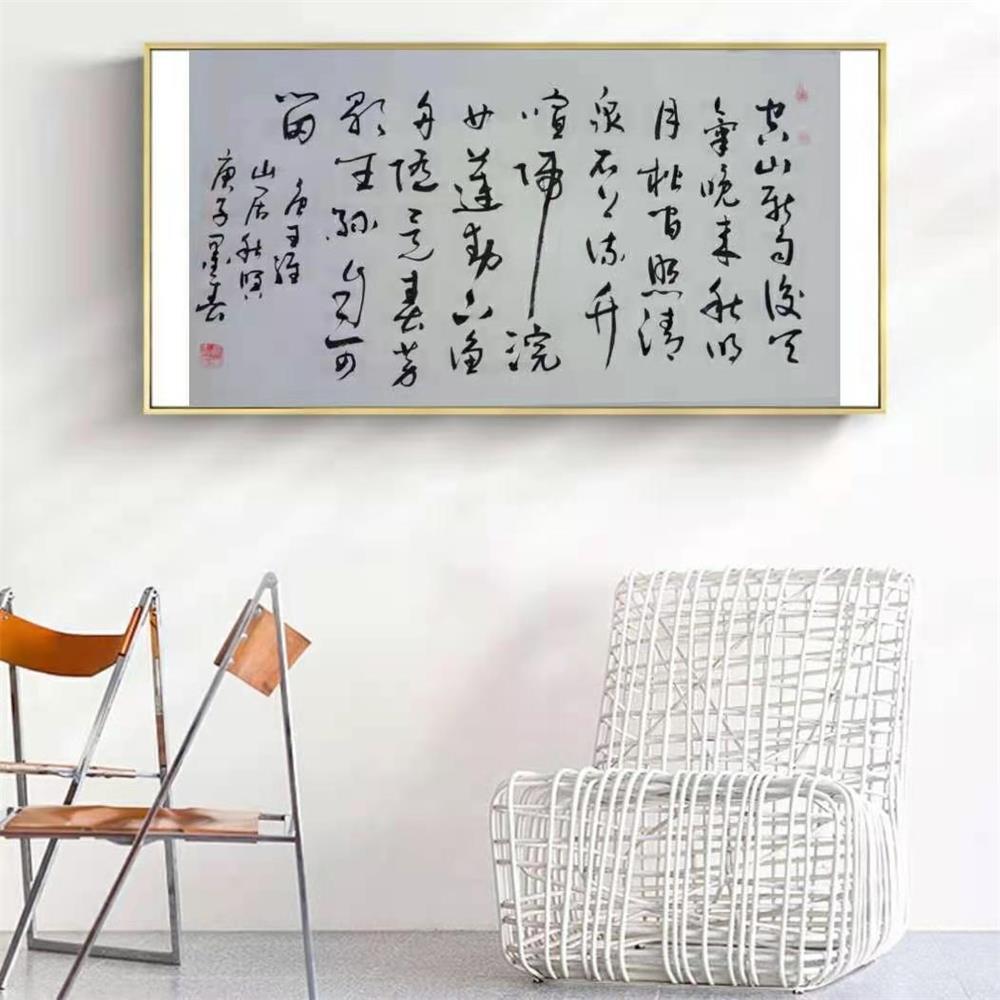 空山新雨後天
氣晚来秋明
月松間照清
泉石上流竹
喧歸浣
女蓮動下漁
舟隨意春芳
歇王孫自可
留
唐王維
山居秋暝
庚子墨